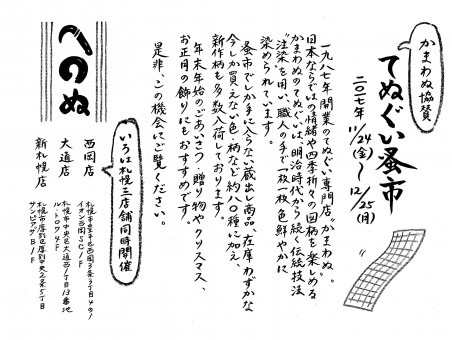 かまわぬ協賛
てぬぐい蚤市
二〇一七年 11/24(金)〜12/25(月)
一九八七年開業のてぬぐい専門店〝かまわぬ〟。
日本ならではの情緒や四季折々の図柄を楽しめる
かまわぬのてぬぐいは、明治時代から続く伝統技法
〝注染〟を用い、職人の手で一枚一枚色鮮やかに
染められています。
蚤市でしか手に入らない蔵出し商品、在庫わずかな
今しか買えない色・柄など約八〇種に加え
新作柄も多数入荷しております。
年末年始のごあいさつ、贈り物やクリスマス、
お正月の飾りにもおすすめです。
是非、この機会にご覧ください。
いろは札幌三店舗同時開催
西岡店
札幌市豊平区西岡3条3丁目4の1
イオン西岡SC1F
大通店
札幌市中央区大通西1丁目13番地
ル・トロワ4F
新札幌店
札幌市厚別区厚別中央2条5丁目
サンピアザB1F